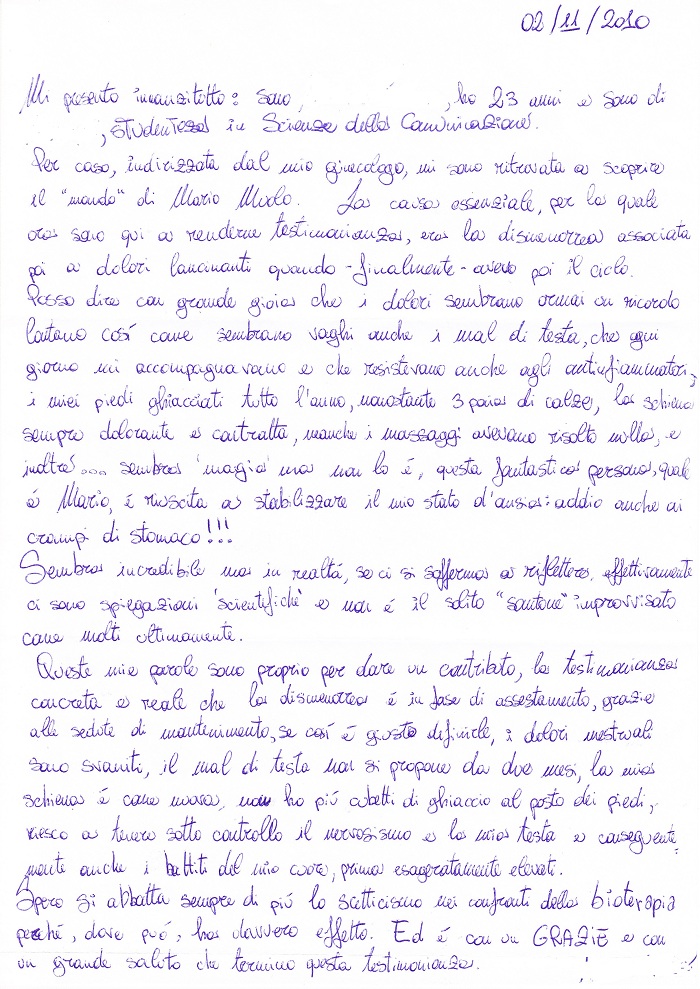 02/11/2010
Mi presento innanzitutto: sono, , ho 23 anni e sono di
, studentessa in Scienze della Comunicazione.
Per caso, indirizzata dal mio ginecologo, mi sono ritrovata a scoprire
il "mondo" di Mario Modo. La causa essenziale, per la quale
ora sono qui a renderne testimonianza, era la dismenorrea associata
poi a dolori lancinanti quando -finalmente- avevo poi il ciclo.
Posso dire con grande gioia che i dolori sembrano ormai un ricordo
lontano così come sembrano vaghi anche i mal di testa, che ogni
giorno mi accompagnavano e che resistevano anche agli antinfiammatori;
i miei piedi ghiacciati tutto l'anno, nonostante 3 paia di calze, la schiena
sempre dolorante e contratta, neanche i massaggi avevano risolto nulla, e
inoltre... sembra 'magia' ma non lo è, questa fantastica persona, quale
è Mario, è riuscita a stabilizzare il mio stato d'ansia: addio anche ai
crampi di stomaco!!!
Sembra incredibile ma in realtà, se ci si sofferma a riflettere, effettivamente
ci sono spiegazioni 'scientifiche' e non è il solito "santone" improvvisato
come molti ultimamente.
Queste mie parole sono proprio per dare un contributo, la testimonianza
concreta e reale che la dismenorrea è in fase di assestamento, grazie
alle sedute di mantenimento, se così è giusto definirle, i dolori mestruali
sono svaniti, il mal di testa non si propone da due mesi, la mia
schiena è come nuova, non ho più cubetti di ghiaccio al posto dei piedi,
riesco a tenere sotto controllo il nervosismo e la mia testa e conseguente
mente anche i battiti del mio cuore, prima esageratamente elevati.
Spero si abbatta sempre di più lo scetticismo nei confronti della bioterapia
perché, dove può, ha davvero effetto. Ed è con un GRAZIE e con
un grande saluto che termino questa testimonianza.